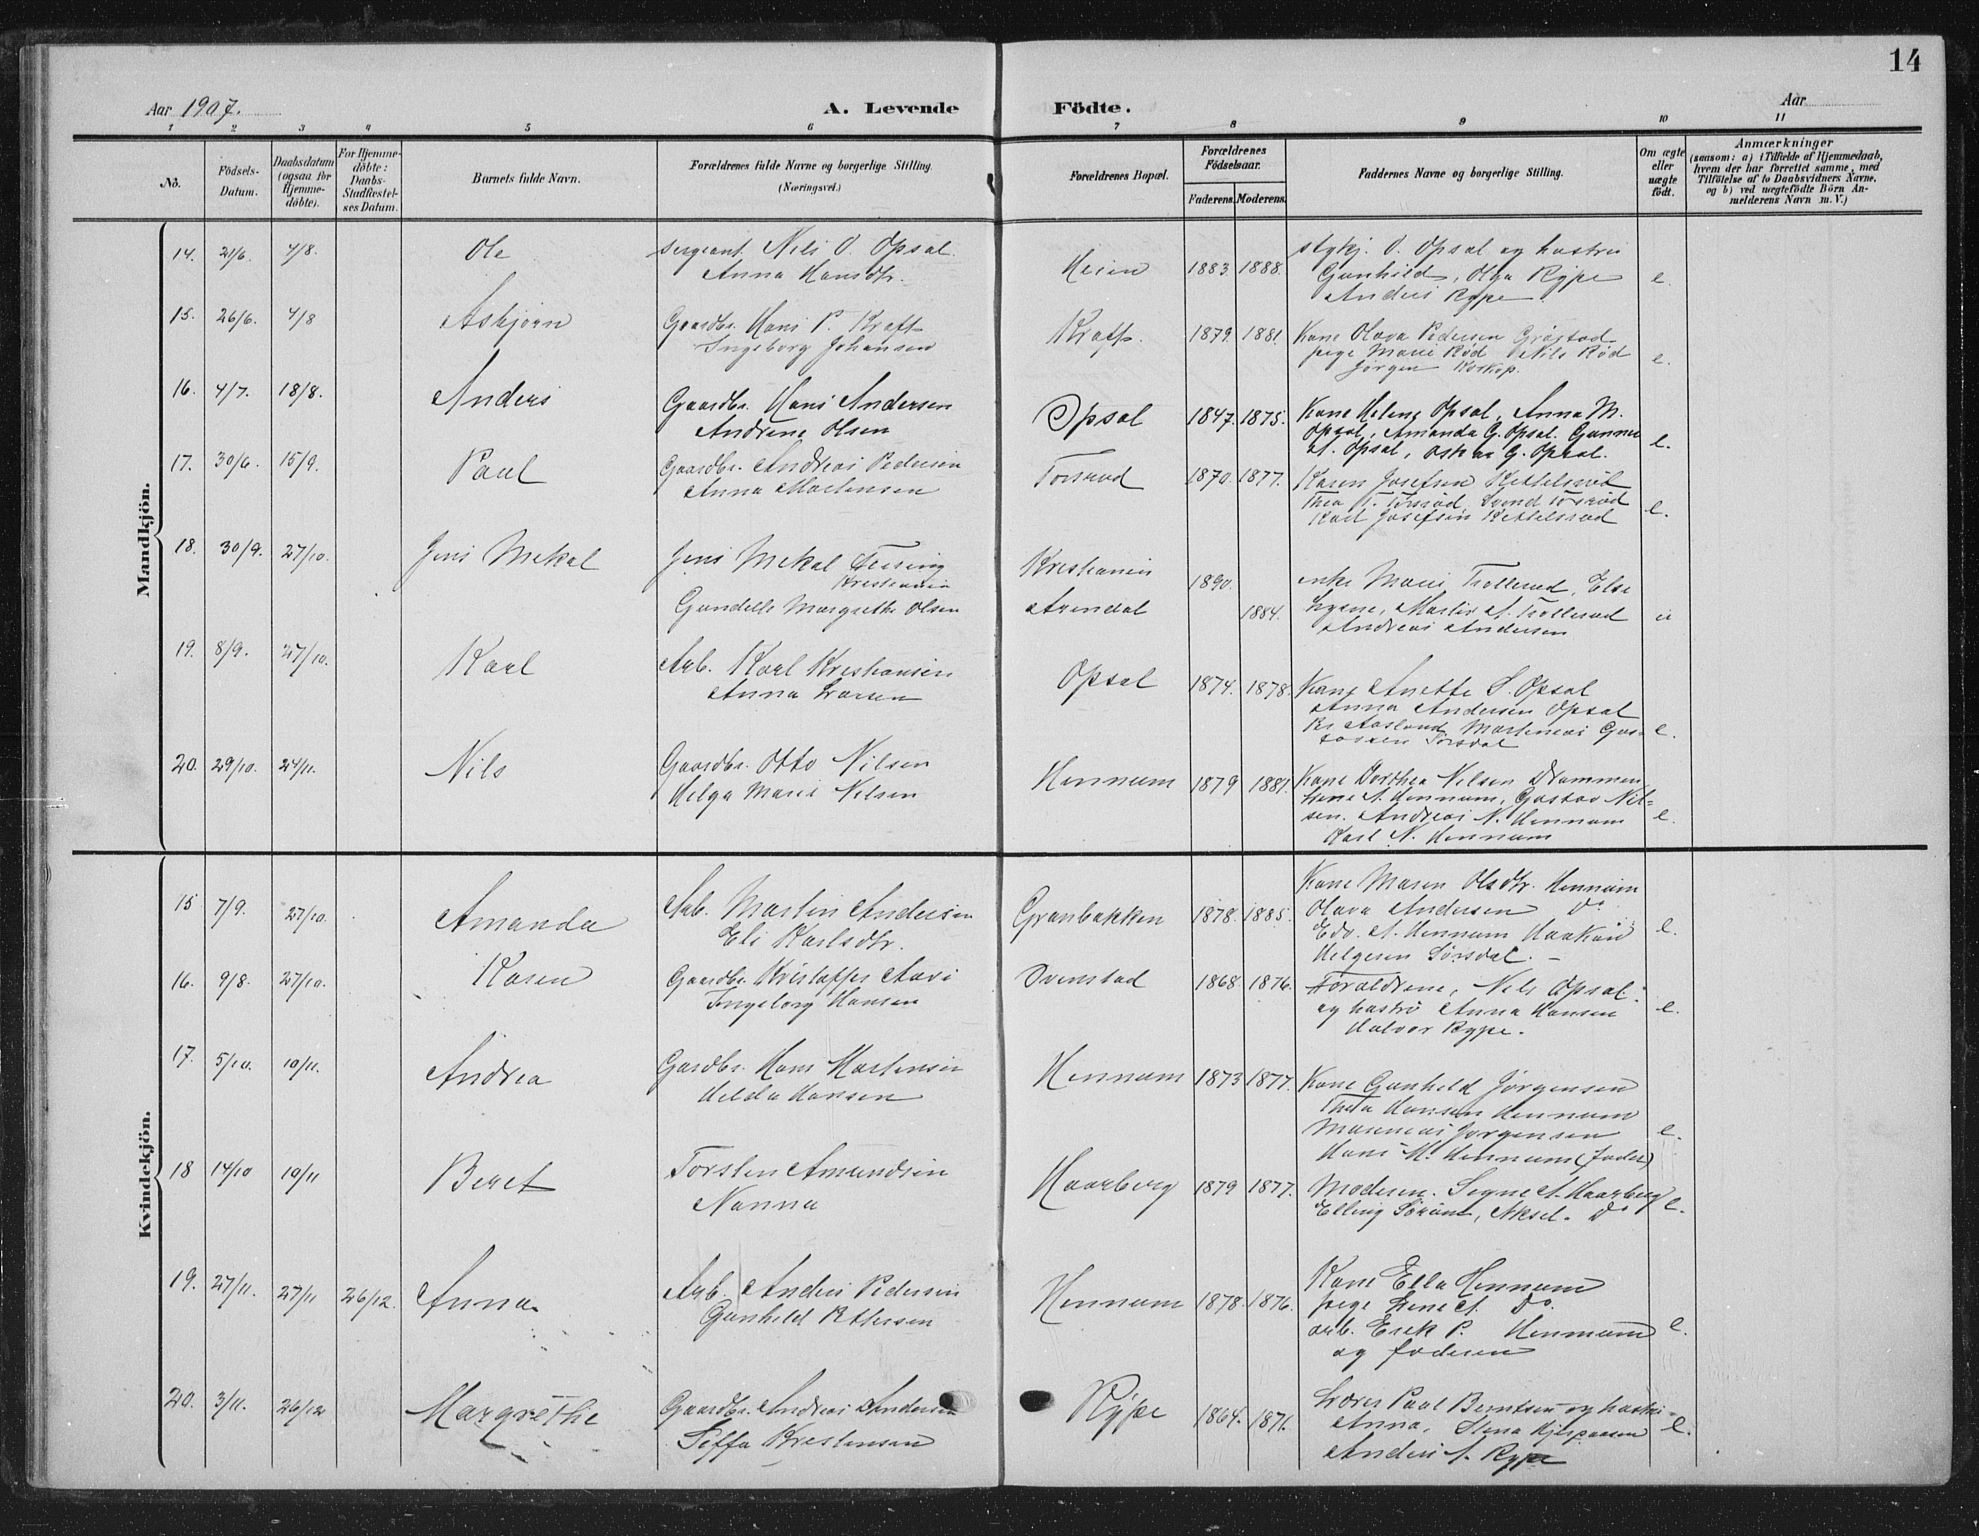 14
Aar 1907.
A. Levende Födte.
Aar
1 2 3 4 5 6 7 8 9 10 11
No.
Födsels-Datum.
Daabsdatum (ogsaa for Hjemme-döbte).
For Hjemme-döbte: Daabs-Stadfæstel-ses Datum.
Barnets fulde Navn.
Forældrenes fulde Navne og borgerlige Stilling.
(Næringsvei.)
Forældrenes Bopæl.
Forældrenes Födselsaar.
Faderens. Moderens.
Faddernes Navne og borgerlige Stilling.
Om ægte eller uægte födt.
Anmærkninger
(saasom: a) i Tilfælde af Hjemmedaab,
hvem der har forrettet samme, med
Tilföielse af to Daabsvidners Navne.
og b) ved uægtefödte Börn An-
melderens Navn m. V.)
Mandkjön.
14. 21/6. 4/8. Ole Sergeant Nils O. Opsal Heien 1883 1888. O. Opsal og hustru e.
Anna Hansdtr. Gunhild, Olga Rype
Anders Rype
15. 26/6. 4/8 Asbjørn Gaardbr. Hans P. Kraft 1879. 1881 Kone Olava Pedersen Grøstad e.
Ingeborg Johansen pige Marie Rød Nils Rød
Jørgen
16. 4/7. 18/8. Anders Gaardbr. Hans Andersen Opsal 1847. 1875. Kone Helene Opsal, Anna M. e.
Andrine Olsen Opsal, Amanda G. Opsal. Gunnar
A. Opsal, Oskar G. Opsal.
17. 30/6. 15/9. Paul Gaardbr. Andreas Pedersen 1870. 1877. Karen Josefsen e.
Anna Martinsen Thea T. Torsrød, Svend Torsrød
Karl Josefsen
18. 30/9. 27/10. Jens Mekal Jens Mekal Kristiania 1890. enke Marie Trollerud, Else
Kristiania
Gundelle Margrethe Olsen Arendal 1884. Martin A. Trollerud u
Andreas Andersen
19. 8/9. 27/10. Karl Arb. Karl Kristiansen Opsal 1874. 1878. Kone Anette S. Opsal
Anna Larsen Anna Andersen Opsal
Aaslund, Martinius Gus- e.
Sørsdal
20. 29/10. 24/11. Nils Gaardbr. Otto Nilsen Hennum 1879 1881. Kone Dorthea Nilsen Drammen
Helga Marie Nilsen Lene A. Hennum, Gustav Nil-
sen. Andreas N. Hennum e.
Karl N. Hennum
Kvindekjön.
15 7/9. 27/10. Amanda Arb. Martin Andersen Granbakken 1878. 1885. Kone Maren Olsdtr. Hennum
Eli Karlsdtr. Olava Andersen Do e.
Edv. A. Hennum Haakon
Helgesen Sørsdal. –
16. 9/8. 27/10. Karen Gaardbr. Kristoffer 1868. 1876. Foraldrene, Nils Opsal e.
Ingeborg Hansen og hustru Anna Hansen
Halvor Rype.
17. 5/10. 10/11. Andrea Gardbr. Hans Martinsen Hennum 1873 1877. Kone Gunhild Jørgensen
Hilda Hansen Thea Hansen Hennum
Jørgensen e.
Hans M. Hennum (fader)
18 14/10 10/11 Beret Torsten Amundsen Haarberg 1879 1877. Moderen. Signe A. Haarberg e.
Nanna Elling Aksel. Do
19. 27/11. 27/11 26/12. Anna Arb. Anders Pedersen Hennum 1878. 1876. Kone Ella Hennum
Gunhild Pettersen pige Lene A. Do.
arb. Erik P. Hennum e.
og faderen
20. 3/11. 26/12 Margrethe Gaardbr. Andreas Andersen Rype 1864. 1876. Lærer Paul Berntsen og hustru e.
Kristensen Anna,
Anders A. Rype